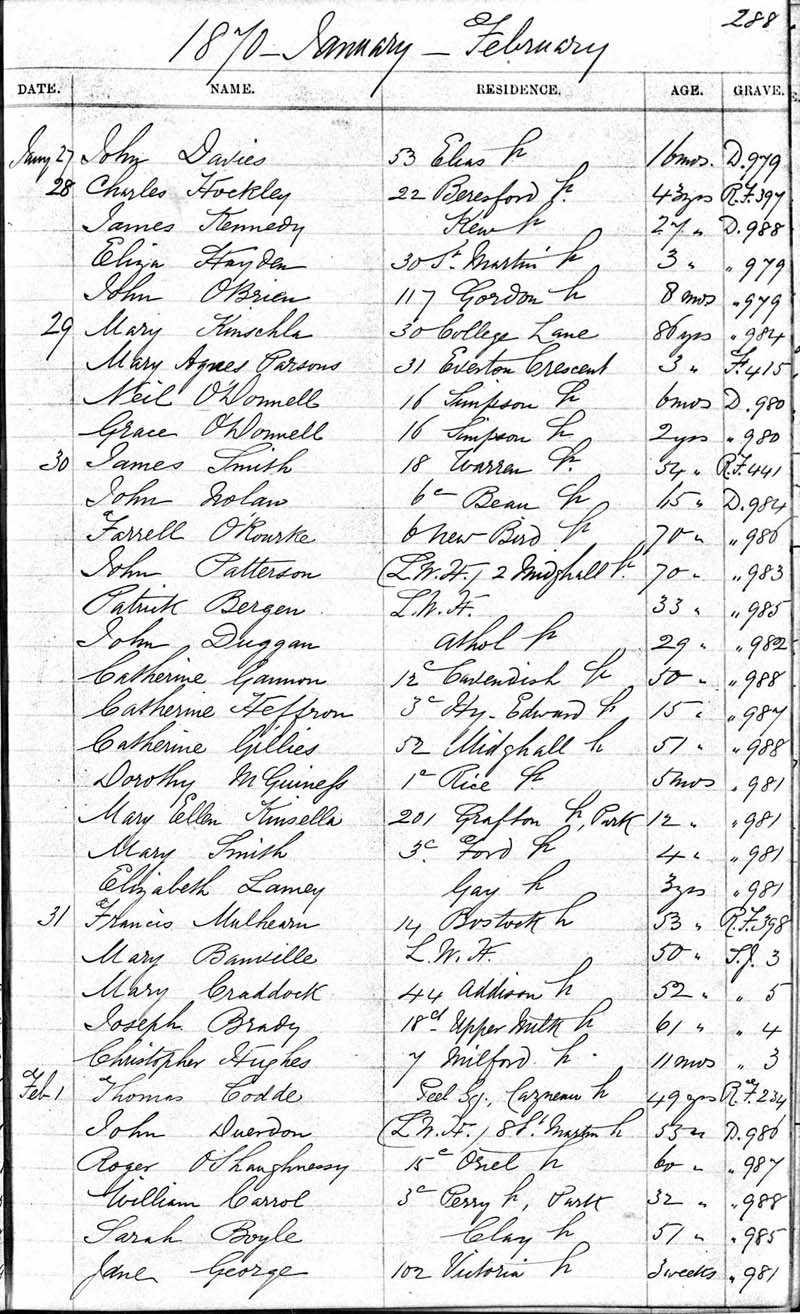 288
1870 - January - February
DATE. NAME. RESIDENCE. AGE. GRAVE.
Jany 27 John Davies 53 Elias St 16 mos. D. 979
28 Charles Hockley 22 Beresford St. 43 yrs R.F. 397
James Kennedy Kew St 27 " D. 988
Eliza Hayden 30 St. Martin St 3 " " 979
John O'Brien 117 Gordon St 8 mos " 979
29 Mary Kinschla 30 College Lane 86 yrs " 984
Mary Agnes Parsons 31 Everton Crescent 3 " F. 415
Neil O'Donnell 16 Simpson St 6 mos D. 980
Grace O'Donnell 16 Simpson St 2 yrs " 980
30 James Smith 18 Warren St. 54 " R.F. 441
John Nolan 6 Beau St 15 " D. 984
Farrell O'Rourke 6 New Bird St 70 " " 986
John Patterson (L.W.H.) 2 Midghall St. 70 " " 983
Patrick Bergen L.W.H. 33 " " 985
John Duggan Athol St 29 " " 982
Catherine Gannon 12c Cavendish St 50 " " 988
Catherine Heffron 3c Hy. Edward St 15 " " 987
Catherine Gillies 52 Midghall St 51 " " 988
Dorothy McGuiness 1 Rice St 5 mos " 981
Mary Ellen Kinsella 201 Grafton St, Park 12 " " 981
Mary Smith 3c Ford St 4 " " 981
Elizabeth Lamey Gay St 3 yrs " 981
31 Francis Mulhearn 14 Bostock St 53 " R.F. 398
Mary Banville L.W.H. 50 " S.J. 3
Mary Craddock 44 Addison St 52 " " 5
Joseph Brady 18 Upper Milk St 61 " " 4
Christopher Hughes 7 Milford St. 11 mos " 3
Feb 1 Thomas Codde Peel Sq., Cazneau St 49 yrs R.F. 234
John Duerdon (L.W.H.) 8 St. Martin St 53 " D. 986
Roger O'Shaughnessy 15c Oriel St 60 " " 987
William Carrol 3c Perry St, Park 32 " " 988
Sarah Boyle Clay St 51 " " 985
Jane George 102 Victoria St 3 weeks " 981